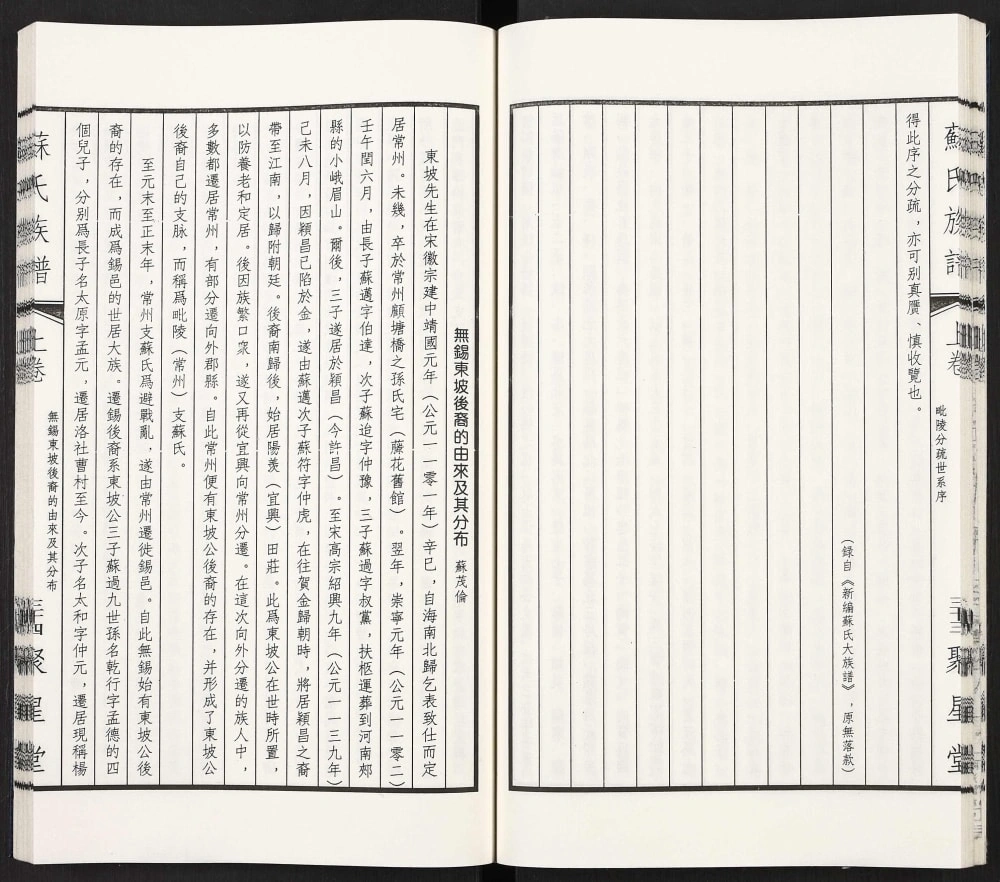 蘇氏族譜
上卷
毗陵分疏世系序
聚星堂
得此序之分疏，亦可別真贋、慎收覽也。
（錄自《新編蘇氏大族譜》，原無落款）
無錫東坡後裔的由來及其分布　蘇茂倫
東坡先生在宋徽宗建中靖國元年（公元一一零一年）辛巳，自海南北歸乞表致仕而定
居常州。未幾，卒於常州顧塘橋之孫氏宅（藤花舊館）。翌年，崇寧元年（公元一一零二）
壬午閏六月，由長子蘇邁字伯達，次子蘇迨字仲豫，三子蘇過字叔黨，扶柩運葬到河南郟
縣的小峨眉山。爾後，三子遂居於穎昌（今許昌）。至宋高宗紹興九年（公元一一三九年）
己未八月，因穎昌已陷於金，遂由蘇邁次子蘇符字仲虎，在往賀金歸朝時，將居穎昌之裔
帶至江南，以歸附朝廷。後裔南歸後，始居陽羨（宜興）田莊。此爲東坡公在世時所置，
以防養老和定居。後因族繁口衆，遂又再從宜興向常州分遷。在這次向外分遷的族人中，
多數都遷居常州，有部分遷向外郡縣。自此常州便有東坡公後裔的存在，并形成了東坡公
後裔自己的支脉，而稱爲毗陵（常州）支蘇氏。
至元末至正末年，常州支蘇氏爲避戰亂，遂由常州遷徒錫邑。自此無錫始有東坡公後
裔的存在，而成爲錫邑的世居大族。遷錫後裔系東坡公三子蘇過九世孫名乾行字孟德的四
個兒子，分别爲長子名太原字孟元，遷居洛社曹村至今。次子名太和字仲元，遷居現稱楊
蘇氏族譜
上卷
無錫東坡後裔的由來及其分布
聚星堂